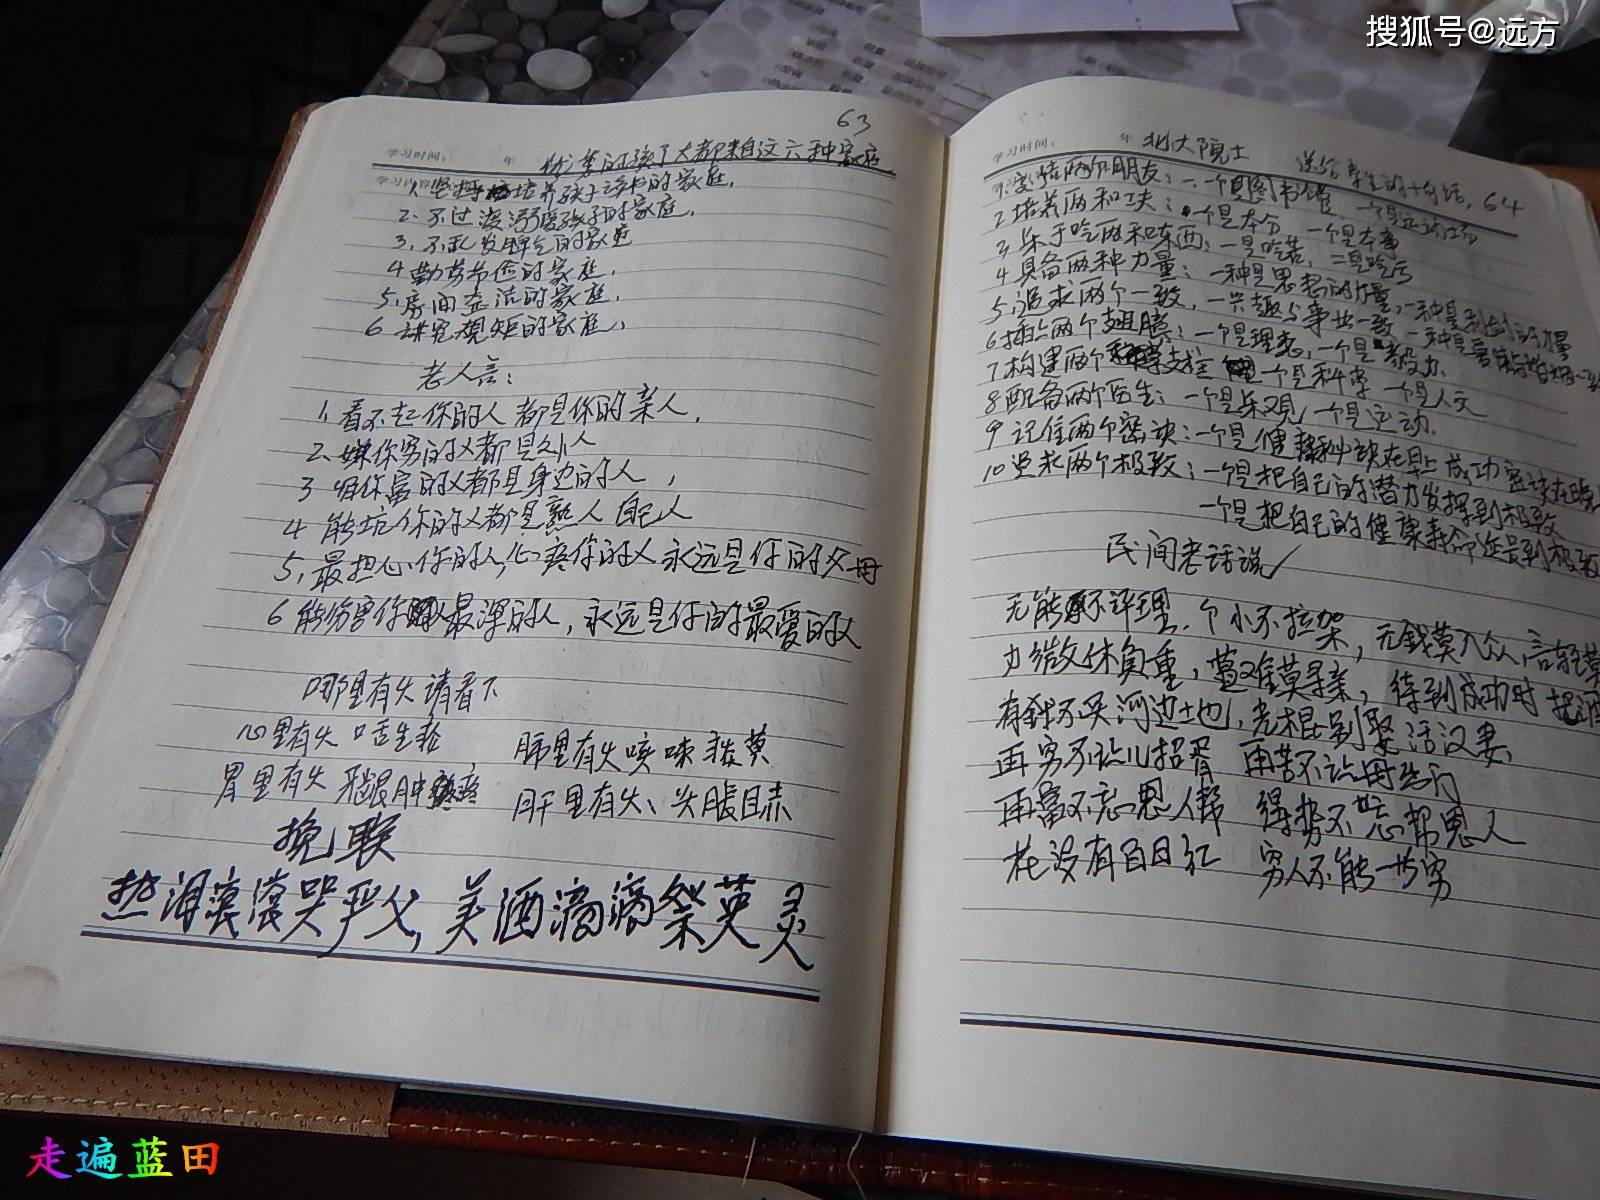 搜狐号@远方
63
学习时间： 年 优秀的孩子大都来自这六种家庭
1. 坚持培养孩子读书的家庭.
2. 不过渡溺爱孩子的家庭.
3. 不乱发脾气的家庭
4 勤劳节俭的家庭.
5. 房间整洁的家庭.
6 讲究规矩的家庭.
老人言：
1. 看不起你的人都是你的亲人.
2. 嫌你穷的人都是外人
3 恨你富的人都是身边的人,
4 能坑你的人都是熟人自己人
5, 最担心你的人,心疼你的人永远是你的父母
6 能伤害你最深的人,永远是你的最爱的人
哪里有火请看下
心里有火口舌生疮
肺里有火咳嗽痰黄
胃里有火牙龈肿疼
肝里有火、头胀目赤
挽联
热泪滚滚哭严父,美酒滴滴祭英灵
学习时间： 年 北大院士 送给学生的十句话. 64
1. 交结两个朋友：一个是图书馆 一个是运动场
2 培养两种功夫：一个是本分 一个是本事
3 乐于吃两种东西：一是吃苦, 二是吃亏
4 具备两种力量：一种是思想的力量,一种是利剑的力量
5, 追求两个一致,一兴趣与事业一致
6 插上两个翅膀：一个是理想,一个是毅力.
7 构建两个支柱 一个是科学 一个是人文
8 配备两个医生：一个是乐观, 一个是运动.
9 记住两个密诀：一个是健康秘诀在早上 成功密诀在晚
10 追求两个极致：一个是把自己的潜力发挥到极致
一个是把自己的健康寿命延长到极致
民间老话说
无能不评理. 个小不拉架, 无钱莫入众,言轻莫
力微休负重, 莫寻亲, 待到成功时 把酒
有钱不买河边地, 光棍别娶活汉妻,
再穷不让儿招胥 再苦不让母出门
再富不忘恩人帮 得势不忘帮恩人
花没有百日红 穷人不能一世穷
走遍蓝田